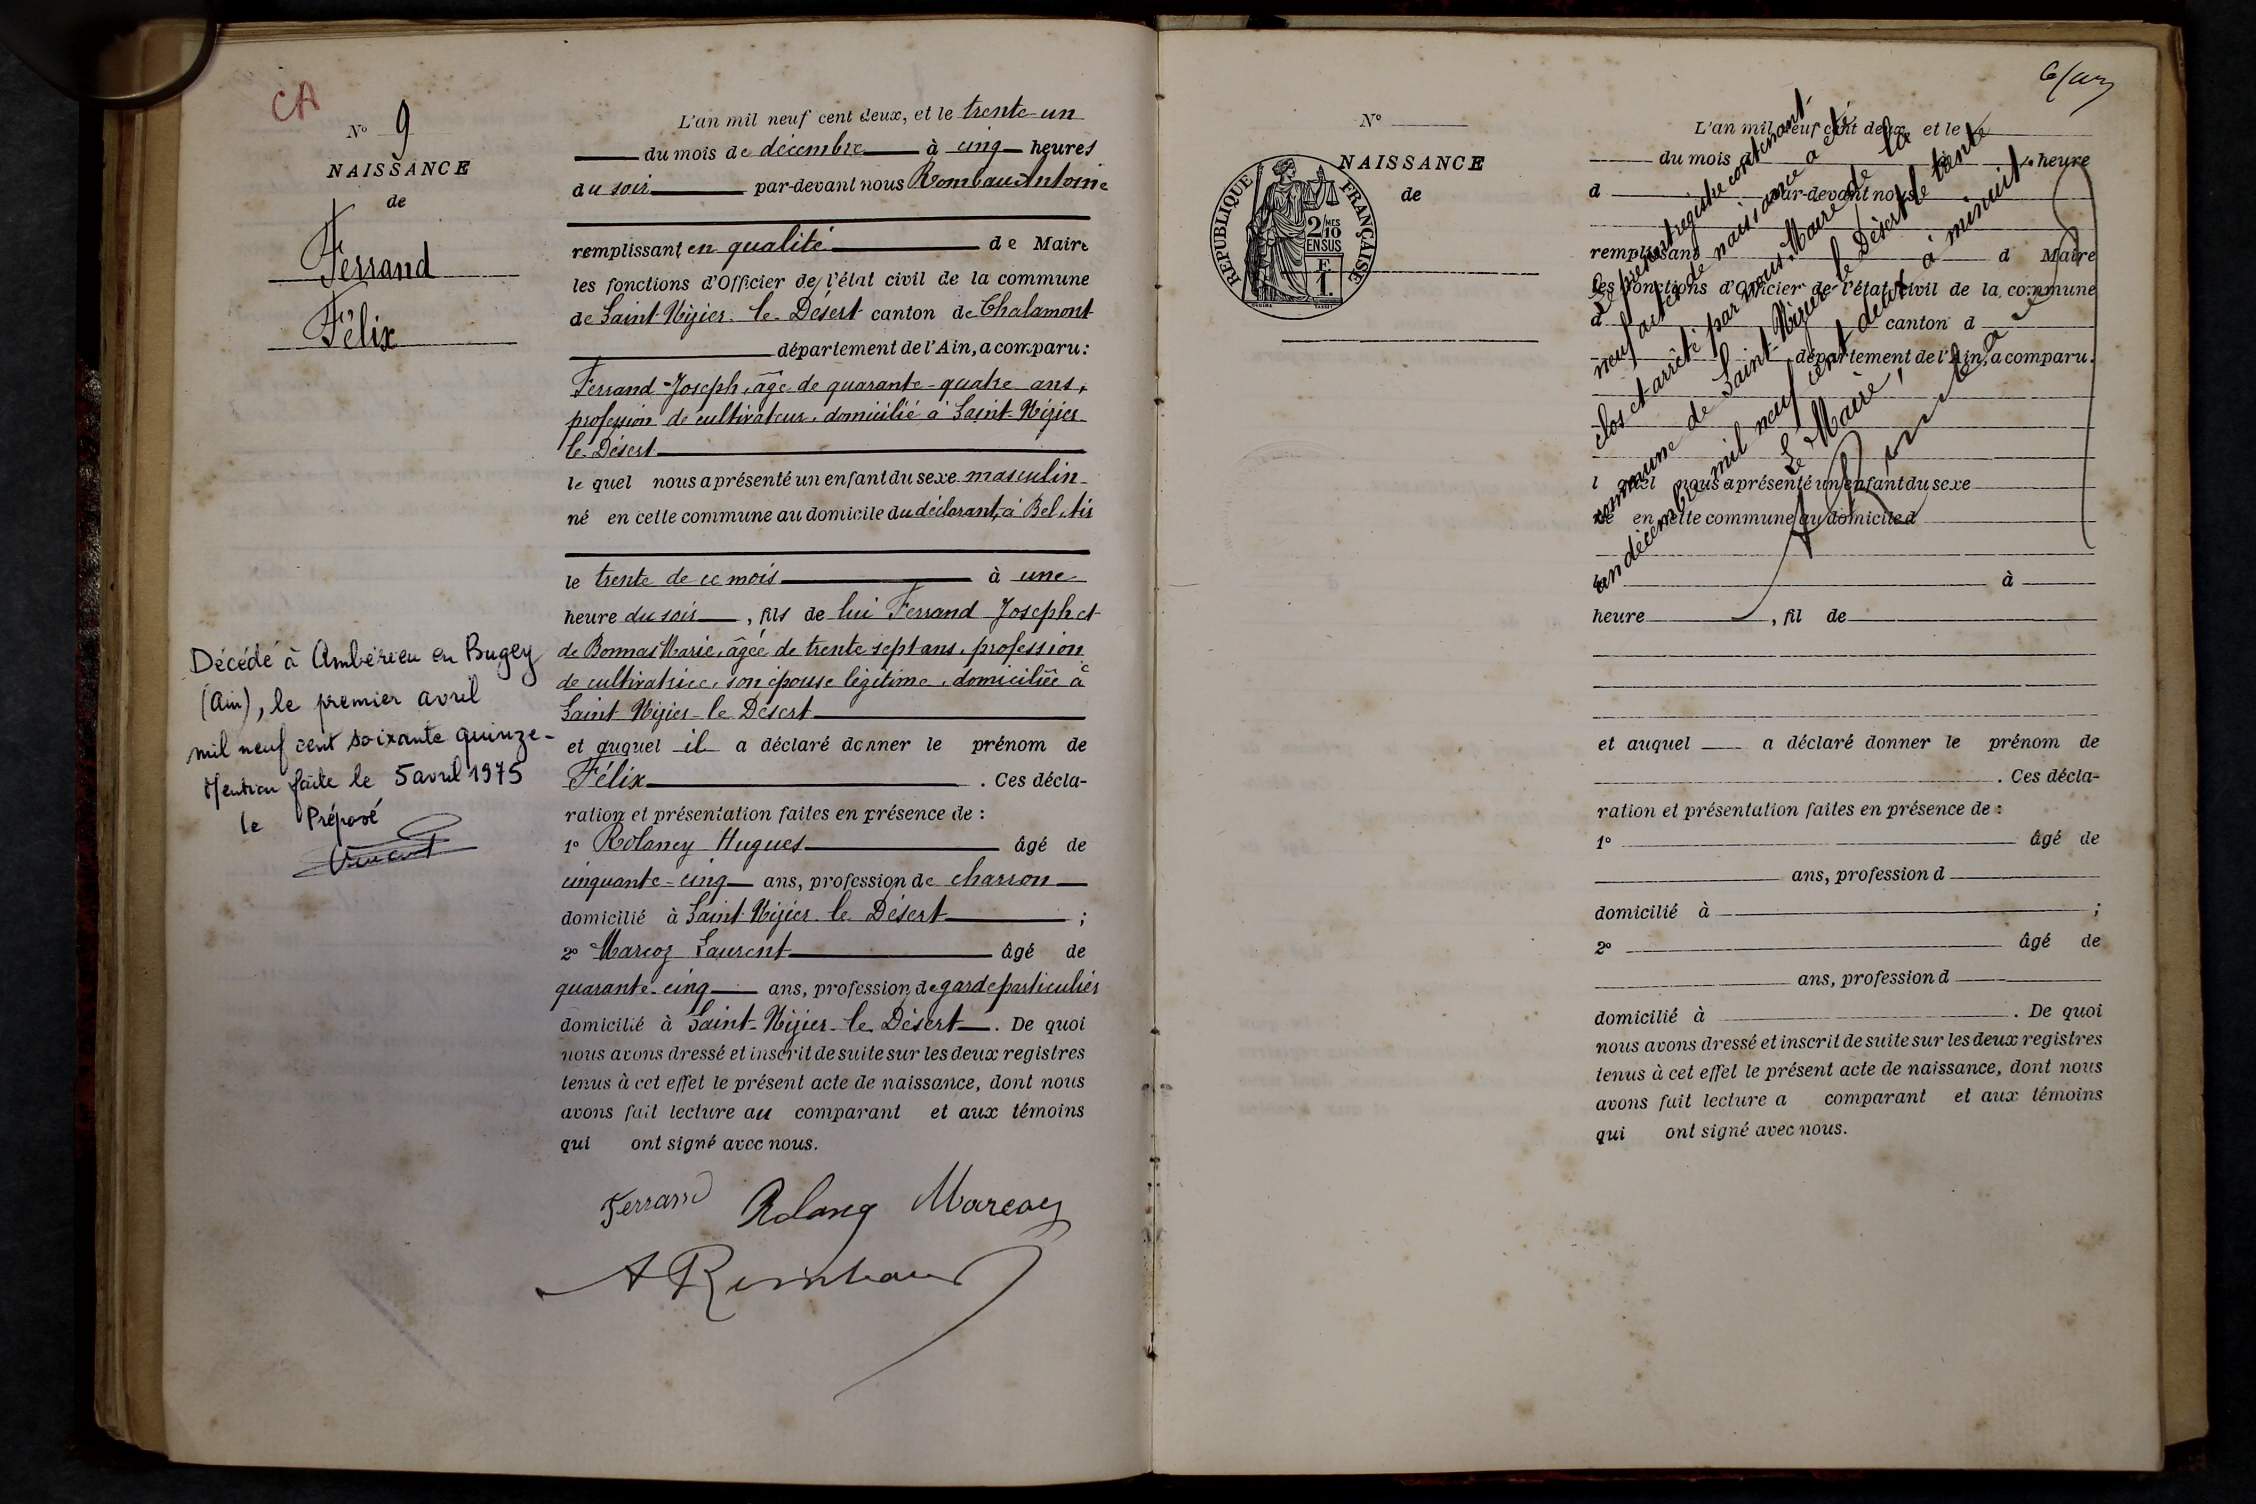 CA
N° 9
NAISSANCE
de
Ferrand
Félix
Décédé à Ambérieu en Bugey
(Ain), le premier avril
mil neuf cent soixante quinze-
Mention faite le 5 avril 1975
le Préposé
Vincent
L'an mil neuf cent deux, et le trente-un
du mois de décembre à cinq heures
du soir par-devant nous Rombau Antoine
remplissant en qualité de Maire
les fonctions d'Officier de l'état civil de la commune
de Saint-Nizier-le-Désert canton de Chalamont
département de l'Ain, a comparu:
Ferrand Joseph, âgé de quarante-quatre ans,
profession de cultivateur, domicilié à Saint-Nizier
le-Désert
le quel nous a présenté un enfant du sexe masculin
né en cette commune au domicile du déclarant, à Bel Air
le trente de ce mois à une
heure du soir, fils de lui Ferrand Joseph et
de Bonnas Marie, âgée de trente sept ans, profession
de cultivatrice, son épouse légitime, domiciliée à
Saint Nizier-le Désert
et auquel il a déclaré donner le prénom de
Félix. Ces décla-
ration et présentation faites en présence de :
1° Rolaney Hugues âgé de
cinquante-cinq ans, profession de charron
domicilié à Saint-Nizier-le Désert ;
2° Marcoz Laurent âgé de
quarante-cinq ans, profession de garde particulier
domicilié à Saint-Nizier-le Désert. De quoi
nous avons dressé et inscrit de suite sur les deux registres
tenus à cet effet le présent acte de naissance, dont nous
avons fait lecture au comparant et aux témoins
qui ont signé avec nous.
Ferrand Rolaney Marcoz
A Rombau
N°
NAISSANCE
de
RÉPUBLIQUE FRANÇAISE
2/10 MES
EN SUS
F
1
L'an mil neuf cent deux, et le
du mois d à heure
d par-devant nous
remplissant d Maire
les fonctions d'Officier de l'état civil de la commune
d canton d
département de l'Ain, a comparu:
l quel nous a présenté un enfant du sexe
né en cette commune au domicile d
le à
heure, fil de
et auquel a déclaré donner le prénom de
. Ces décla-
ration et présentation faites en présence de :
1° âgé de
ans, profession d
domicilié à ;
2° âgé de
ans, profession d
domicilié à . De quoi
nous avons dressé et inscrit de suite sur les deux registres
tenus à cet effet le présent acte de naissance, dont nous
avons fait lecture a comparant et aux témoins
qui ont signé avec nous.
Le présent registre contenant
neuf actes de naissance a été
clos et arrêté par nous, Maire de la
commune de Saint-Nizier-le Désert le trente
un décembre mil neuf cent deux à minuit.
Le Maire,